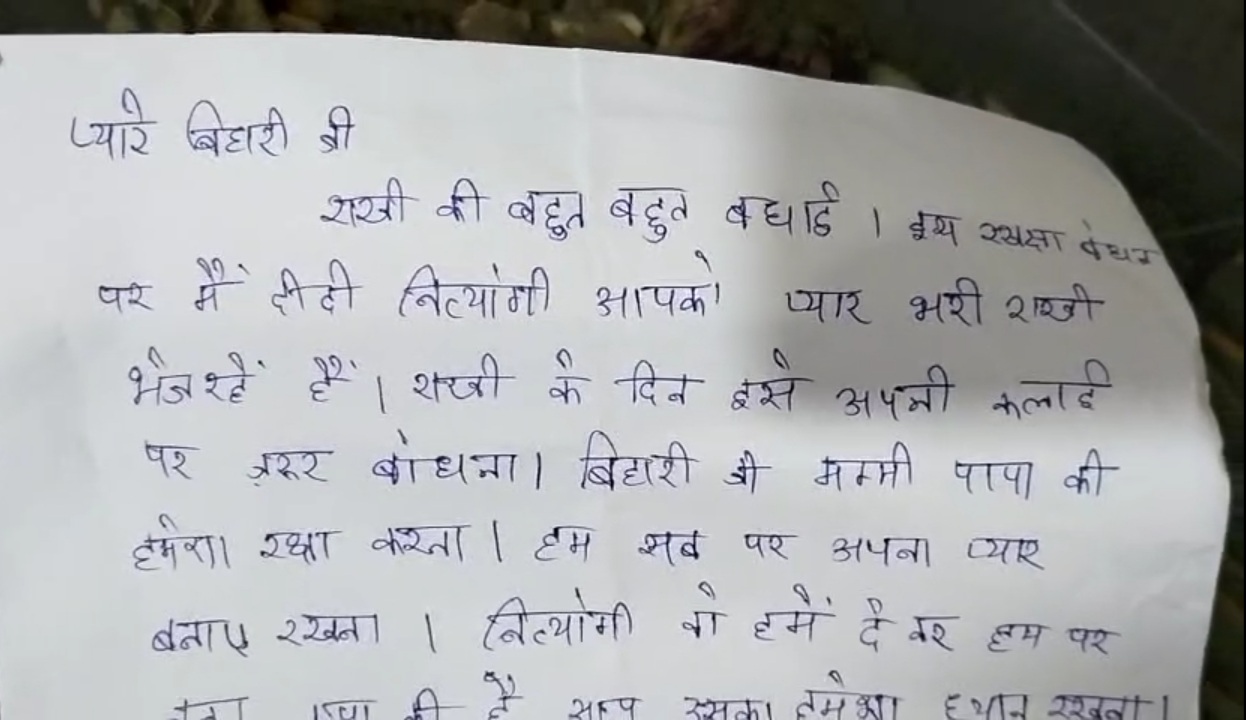 प्यारे बिहारी जी
राखी की बहुत बहुत बधाई । इस रक्षा बंधन
पर मैं दीदी नित्यांगी आपको प्यार भरी राखी
भेज रहें हैं । राखी के दिन इसे अपनी कलाई
पर ज़रूर बांधना। बिहारी जी मम्मी पापा की
हमेशा रक्षा करना । हम सब पर अपना प्यार
बनाए रखना । नित्यांगी को हमें दे कर हम पर
की है आप उसका हमेशा ध्यान रखना।